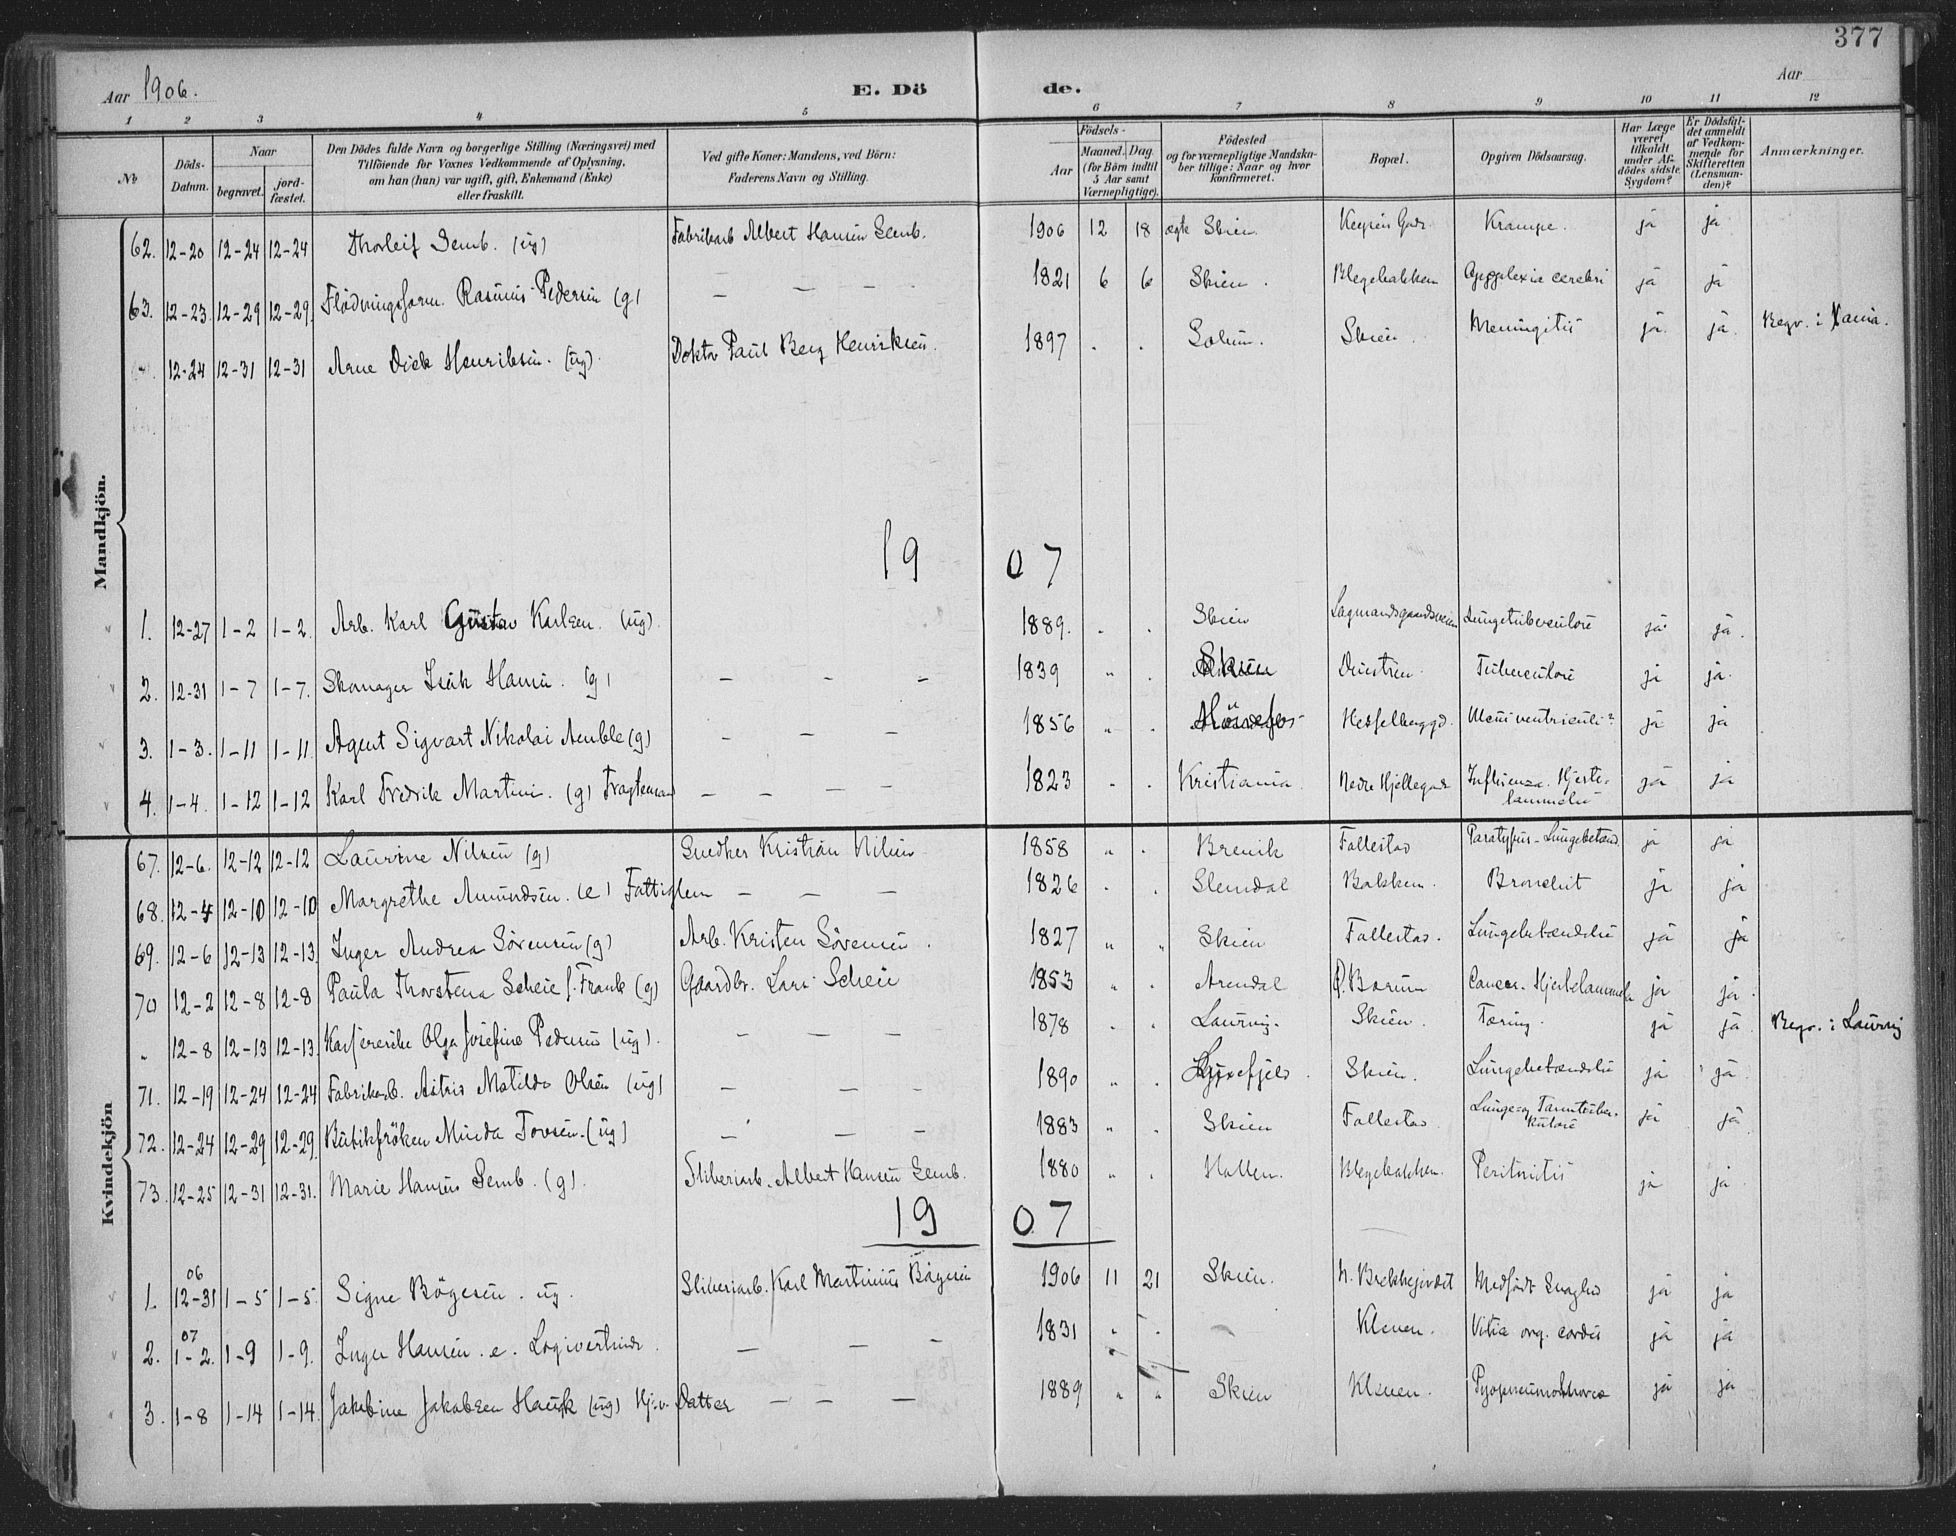 377
Aar 1906. E. Dö de. Aar
1 2 3 4 5 6 7 8 9 10 11 12
No Döds-Datum. Naar begravet. jord-fæstet. Den Dödes fulde Navn og borgerlige Stilling (Næringsvei) med Tilföiende for Voxnes Vedkommende af Oplysning, om han (hun) var ugift, gift, Enkemand (Enke) eller fraskilt. Ved gifte Koner: Mandens, ved Börn: Faderens Navn og Stilling. Födsels- Aar Maaned. Dag. (for Börn indtil 5 Aar samt Værnepligtige). Födested og for værnepligtige Mandska-ber tillige: Naar og hvor konfirmeret. Bopæl. Opgiven Dödsaarsag. Har Læge været tilkaldt under Af-dödes sidste Sygdom? Er Dödsfal-det anmeldt af Vedkom-mende for Skifteretten (Lensman-den)? Anmærkninger.
Mandkjön.
62. 12-20 12-24 12-24 Thorleif Semb. (ug) Fabrikarb Albert Hansen Semb. 1906 12 18 ægte Skien. Krampe. ja ja
63. 12-23. 12-29 12-29. Flödningsform. Rasmus Pedersen (g) — — — 1821 6 6 Skien. Blegebakken Apoplexia cerebri ja ja
" 12-24 12-31 12-31 Arne Dick Henriksen. (ug). Doktor Paul Berg Henriksen. 1897 " " Solum. Skien. Meningitis ja. ja. Begr. i Xania.
1907
1. 12-27 1-2 1-2. Arb. Karl Gustav Karlsen. (ug). 1889. " " Skien Lagmandsgaardsveien Lungetuberculose ja ja.
2. 12-31 1-7 1-7. Skomager Isak Hansen. (g) — — — 1839 " " Skien Tuberculose ja ja.
3. 1-3. 1-11 1-11 Agent Sigvart Nikolai Amble (g) — — — 1856 " " Hönefos Hesselberggd. Ulcus ventriculi? ja ja
4. 1-4. 1-12 1-12 Karl Fredrik Martini. (g) Fragtemand — — — 1823 " " Kristiania. Nedre Hjellegade Influenza. Hjerte-lammelse ja ja
Kvindekjön
67. 12-6. 12-12 12-12 Laurine Nilsen (g) Snedker Kristian Nilsen 1858 " " Brevik Follestad Paratyfus-Lungebetænd. ja ja
68. 12-4 12-10 12-10 Margrethe Amundsen. (e) Fattiglem — — — 1826 " " Slemdal Bakken. Bronchit ja ja
69. 12-6 12-13 12-13. Inger Andrea Sörensen (g) Arb. Kristen Sörensen. 1827 " " Skien Follestad. Lungebetændelse ja ja
70 12-2 12-8 12-8 Paula Thorstena Scheie f. Frank (g) Gaardbr. Lars Scheie 1853 " " Arendal Ø. Borum Cancer. Hjertelammelse ja ja.
" 12-8 12-13 12-13. Olga Josefine Pedersen (ug). — — — 1878 " " Laurvig. Skien. Tæring. ja ja Begr. i Laurvig
71. 12-19 12-24 12-24 Fabrikarb. Astrid Matilde Olsen (ug) — — — 1890 " " Luxefjeld. Skien. Lungebetændelse ja ja.
72. 12-24 12-29 12-29. Butikfröken Minda Tovsen. (ug) — — — 1883 " " Skien Follestad. Lunge- og Tarmtuber-kulose ja ja
73. 12-25 12-31 12-31. Marie Hansen Semb. (g). Sliberiarb. Albert Hansen Semb. 1880 " " Hollen. Blegebakken. Peritonitis ja ja.
1907
1. 06 12-31 1-5 1-5. Signe Bögesen. ug. Sliberiarb. Karl Martinius Bögesen 1906 11 21 Skien. N. Brekkejordet Medfödt Svaghed ja ja
2. 07 1-2. 1-9 1-9. Inger Hansen. e. Logivertinde. — — — 1831 " " — Kleven. Vitia org. cordis ja ja
3. 1-8 1-14 1-14. Jakobine Jakobsen Hauk (ug) Hj.v. Datter — — — 1889 " " Skien Kleven. Pyopneumothorax ja ja